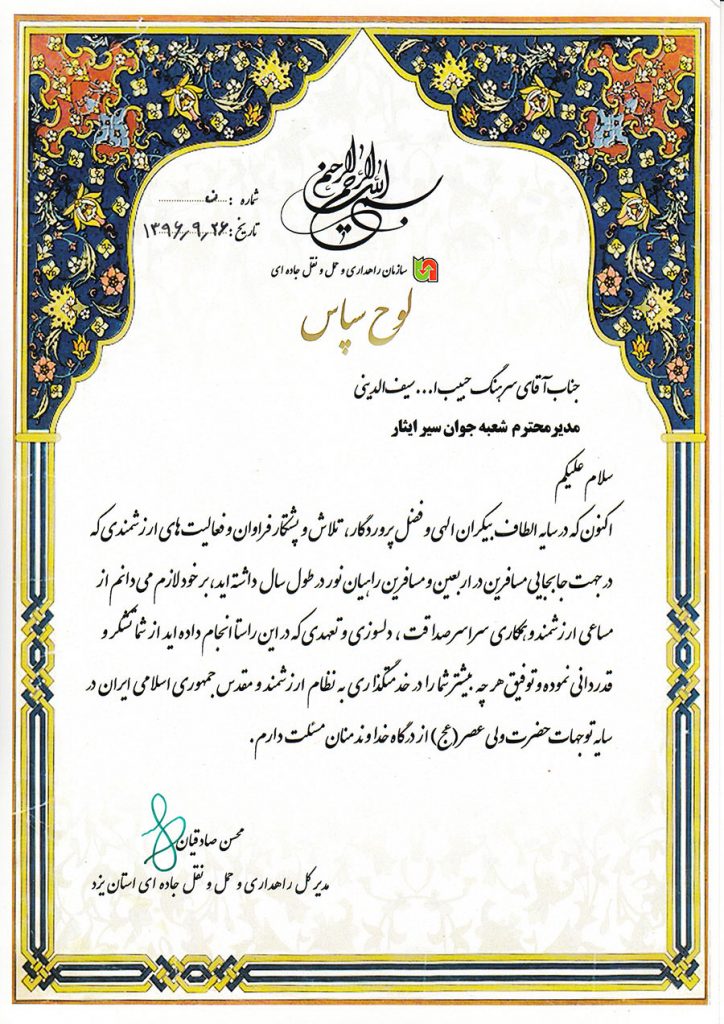 بسم الله الرحمن الرحیم
شماره : ف
تاریخ: ۱۳۹۶٫۹٫۲۶
سازمان راهداری و حمل و نقل جاده ای
لوح سپاس
جناب آقای سرهنگ حبیب ا... سیف الدینی
مدیر محترم شعبه جوان سیر ایثار
سلام علیکم
اکنون که در سایه الطاف بیکران الهی و فضل پروردگار، تلاش و پشتکار فراوان و فعالیت های ارزشمندی که
در جهت جابجایی مسافرین در اربعین و مسافرین راهیان نور در طول سال داشته اید، بر خود لازم می دانم از
مساعی ارزشمند و همکاری سراسر صداقت ، دلسوزی و تعهدی که در این راستا انجام داده اید از شما تشکر و
قدردانی نموده و توفیق هر چه بیشتر شما را در خدمتگذاری به نظام ارزشمند و مقدس جمهوری اسلامی ایران در
سایه توجهات حضرت ولی عصر (عج) از درگاه خداوند منان مسئلت دارم.
محسن صادقیان
مدیر کل راهداری و حمل و نقل جاده ای استان یزد